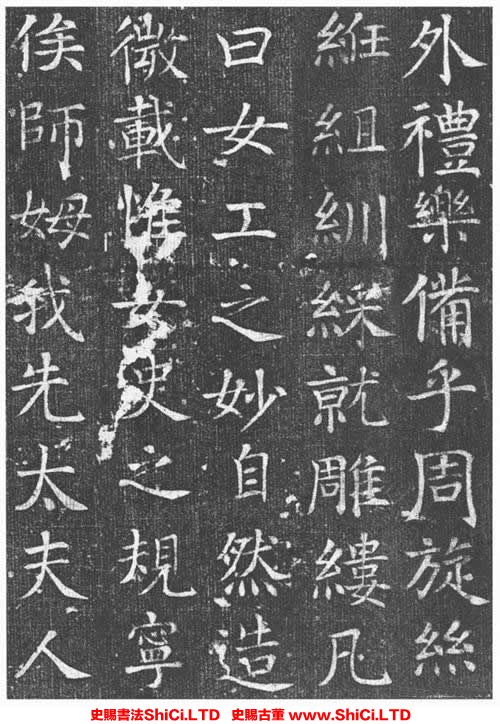 外禮樂備乎周旋絲
絍組紃綵就雕縷凡
曰女工之妙自然造
微載惟女史之規寧
俟師姆我先太夫人
史賜書法ShiCi.LTD 史賜古董 www.ShiCi.LTD